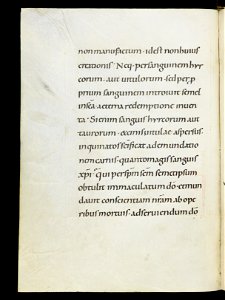 non manufactum · id est non huius
creationis · Neq; per sanguinem hyr
corum · aut uitulorum · sed per p
prium sanguinem introiuit semel
in sca aeterna redemptione inuen
ta · Si enim sanguis hyrcorum aut
taurorum · et cinis uitulae aspersus
inquinatos scificat ad emundatio
nem carnis · quanto magis sanguis
xpi · qui per spm scm semetipsum
obtulit immaculatum do · emun
dauit conscientiam nram ab ope
ribus mortuis · ad seruiendum do